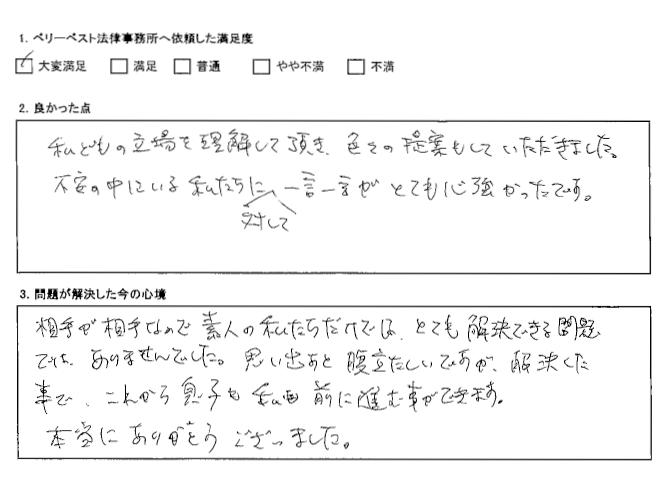 1. ベリーベスト法律事務所へ依頼した満足度
大変満足 満足 普通 やや不満 不満
2. 良かった点
私どもの立場を理解して頂き、色々の提案もしていただきました。
不安の中にいる私たちに、一言一言がとても心強かったです。
対して
3. 問題が解決した今の心境
相手が相手なので素人の私たちだけでは、とても解決できる問題
では、ありませんでした。思い出すと腹立たしいですが、解決した
事で、これから息子も私も前に進む事ができます。
本当にありがとうございました。